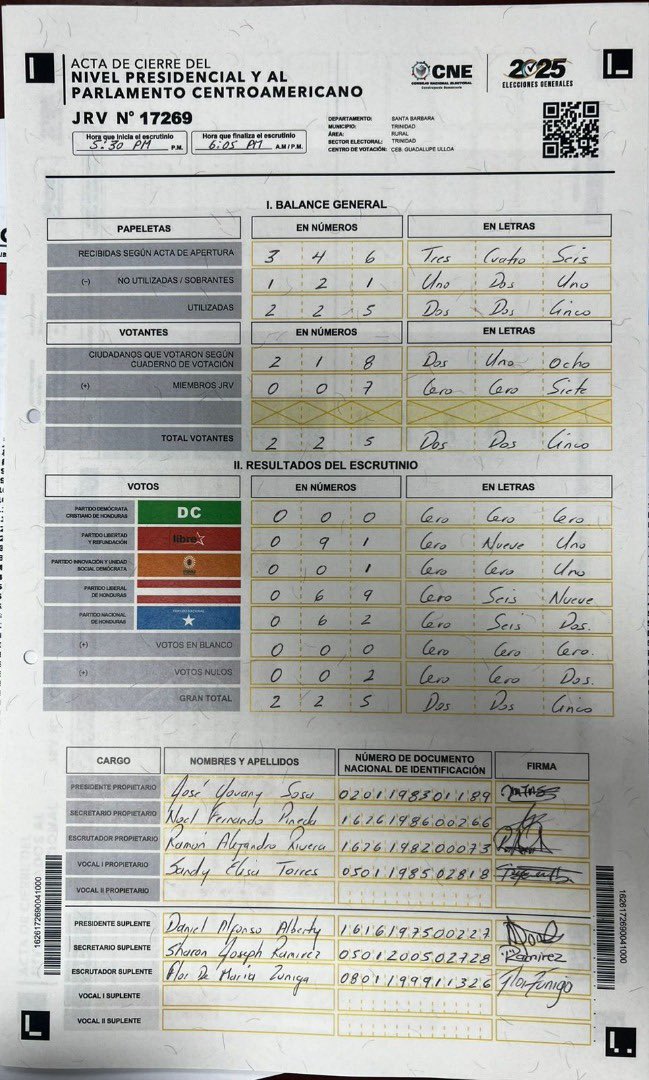 ACTA DE CIERRE DEL
NIVEL PRESIDENCIAL Y AL
PARLAMENTO CENTROAMERICANO
CNE
CONSEJO NACIONAL ELECTORAL
2025
ELECCIONES GENERALES
JRV N° 17269
Hora que inicia el escrutinio 5:30 PM P.M.
Hora que finaliza el escrutinio 6:05 PM A.M / P.M.
DEPARTAMENTO: SANTA BARBARA
MUNICIPIO: TRINIDAD
ÁREA: RURAL
SECTOR ELECTORAL: TRINIDAD
CENTRO DE VOTACIÓN: CEB. GUADALUPE ULLOA
I. BALANCE GENERAL
PAPELETAS EN NÚMEROS EN LETRAS
RECIBIDAS SEGÚN ACTA DE APERTURA 3 4 6 Tres Cuatro Seis
(-) NO UTILIZADAS / SOBRANTES 1 2 1 Uno Dos Uno
UTILIZADAS 2 2 5 Dos Dos Cinco
VOTANTES EN NÚMEROS EN LETRAS
CIUDADANOS QUE VOTARON SEGÚN CUADERNO DE VOTACIÓN 2 1 8 Dos Uno Ocho
(+) MIEMBROS JRV 0 0 7 Cero Cero Siete
TOTAL VOTANTES 2 2 5 Dos Dos Cinco
II. RESULTADOS DEL ESCRUTINIO
VOTOS EN NÚMEROS EN LETRAS
PARTIDO DEMÓCRATA CRISTIANO DE HONDURAS DC 0 0 0 Cero Cero Cero
PARTIDO LIBERTAD Y REFUNDACIÓN libre 0 9 1 Cero Nueve Uno
PARTIDO INNOVACIÓN Y UNIDAD SOCIAL DEMÓCRATA 0 0 1 Cero Cero Uno
PARTIDO LIBERAL DE HONDURAS 0 6 9 Cero Seis Nueve
PARTIDO NACIONAL DE HONDURAS 0 6 2 Cero Seis Dos.
(+) VOTOS EN BLANCO 0 0 0 Cero Cero Cero.
(+) VOTOS NULOS 0 0 2 Cero Cero Dos.
GRAN TOTAL 2 2 5 Dos Dos Cinco
CARGO NOMBRES Y APELLIDOS NÚMERO DE DOCUMENTO NACIONAL DE IDENTIFICACIÓN FIRMA
PRESIDENTE PROPIETARIO José Yovany Sosa 0201198301189
SECRETARIO PROPIETARIO Noel Fernando Pineda 1626198600266
ESCRUTADOR PROPIETARIO Ramón Alejandro Rivera 1626198200073
VOCAL I PROPIETARIO Sandy Elisa Torres 0501198502818
VOCAL II PROPIETARIO
PRESIDENTE SUPLENTE Daniel Alfonso Alberty 1616197500227
SECRETARIO SUPLENTE Sharon Yoseph Ramirez 0501200502728 Ramirez
ESCRUTADOR SUPLENTE Flor De María Zuniga 0801199911326 Flor Zuniga
VOCAL I SUPLENTE
VOCAL II SUPLENTE
1626172690041000
1626172690041000